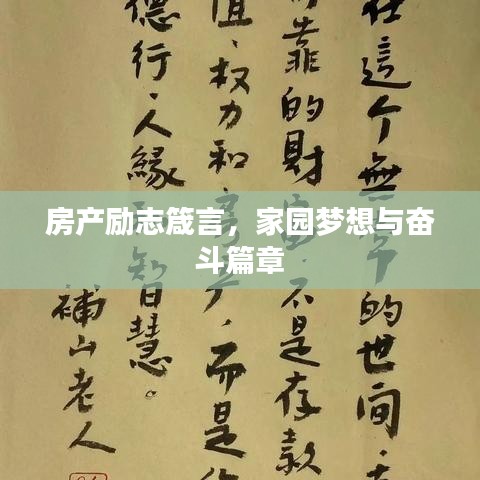 房产励志箴言，家园梦想与奋
斗篇章
在這个無的世间，
靠的財不是存款
值、权力和产，而是
德行、人緣智慧。
補山老人